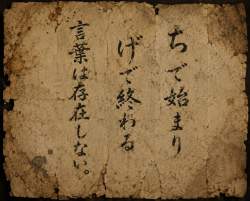 ちで始まり
げで終わる
言葉は存在しない。